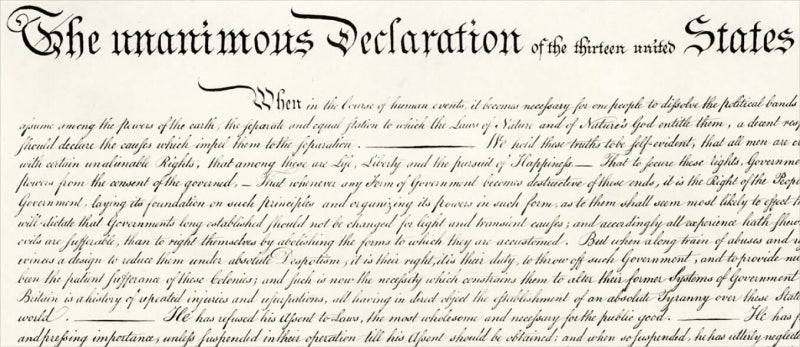 The unanimous Declaration of the thirteen united States
When in the Course of human events, it becomes necessary for one people to dissolve the political bands
assume among the powers of the earth, the separate and equal station to which the Laws of Nature and of Nature's God entitle them, a decent resp
should declare the causes which impel them to the separation. — We hold these truths to be self-evident, that all men are cr
with certain unalienable Rights, that among these are Life, Liberty and the pursuit of Happiness — That to secure these rights, Governme
powers from the consent of the governed, — That whenever any Form of Government becomes destructive of these ends, it is the Right of the Peopl
Government, laying its foundation on such principles and organizing its powers in such form, as to them shall seem most likely to effect t
will dictate that Governments long established should not be changed for light and transient causes; and accordingly all experience hath shew
evils are sufferable, than to right themselves by abolishing the forms to which they are accustomed. But when a long train of abuses and
evinces a design to reduce them under absolute Despotism, it is their right, it is their duty, to throw off such Government, and to provide ne
been the patient sufferance of these Colonies; and such is now the necessity which constrains them to alter their former Systems of Government
Britain is a history of repeated injuries and usurpations, all having in direct object the establishment of an absolute Tyranny over these State
world. — He has refused his Assent to Laws, the most wholesome and necessary for the public good. — He has f
and pressing importance, unless suspended in their operation till his Assent should be obtained; and when so suspended, he has utterly neglecte